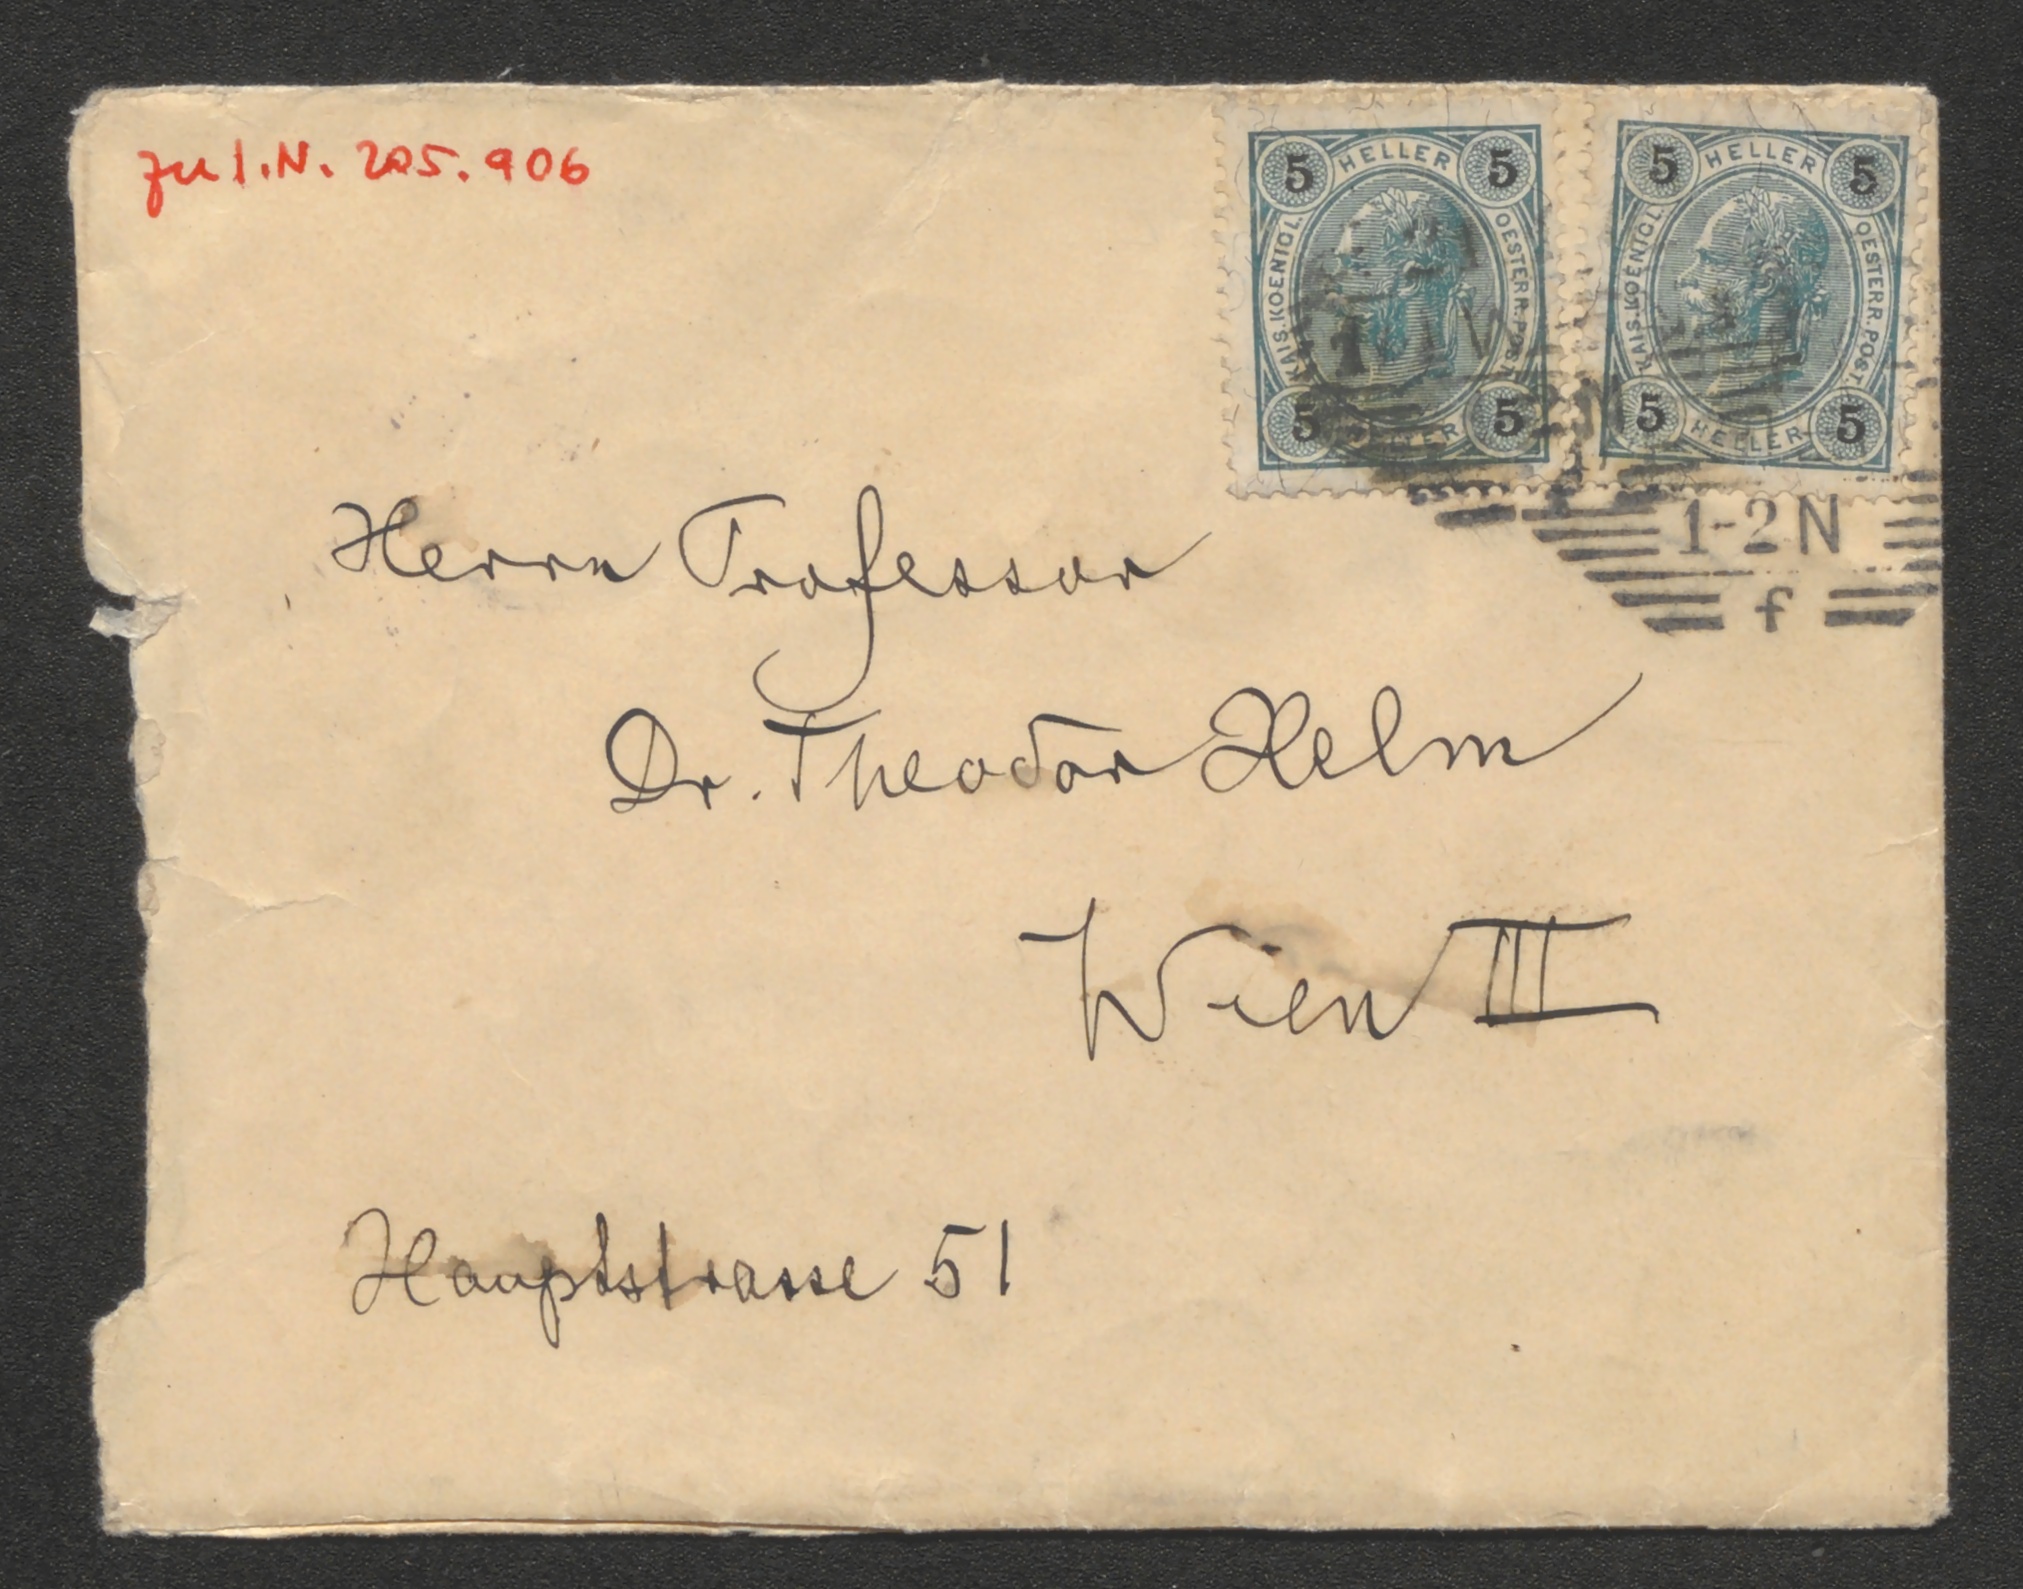 zu I.N. 205.906
5 HELLER 5
KAIS. KOENIGL. OESTERR. POST.
5 HELLER 5
5 HELLER 5
KAIS. KOENIGL. OESTERR. POST.
5 HELLER 5
1-2 N
f
Herrn Professor
Dr. Theodor Helm
Wien III
Hauptstrasse 51